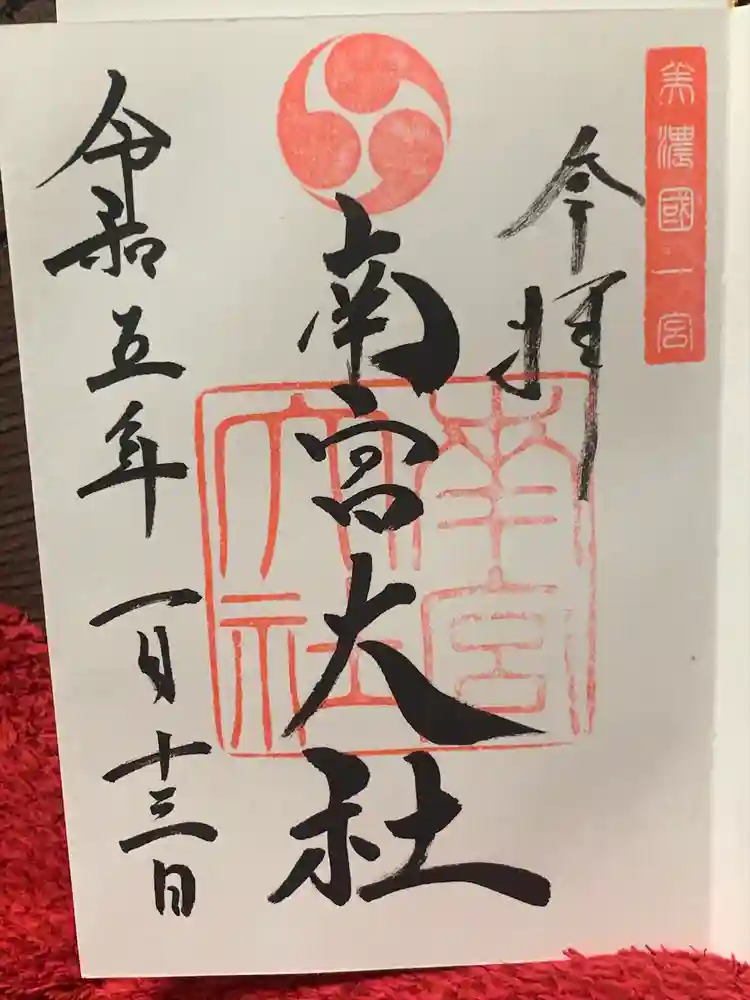 美濃國一宮
今拝
南宮大社
南宮大社
令和五年一月十三日